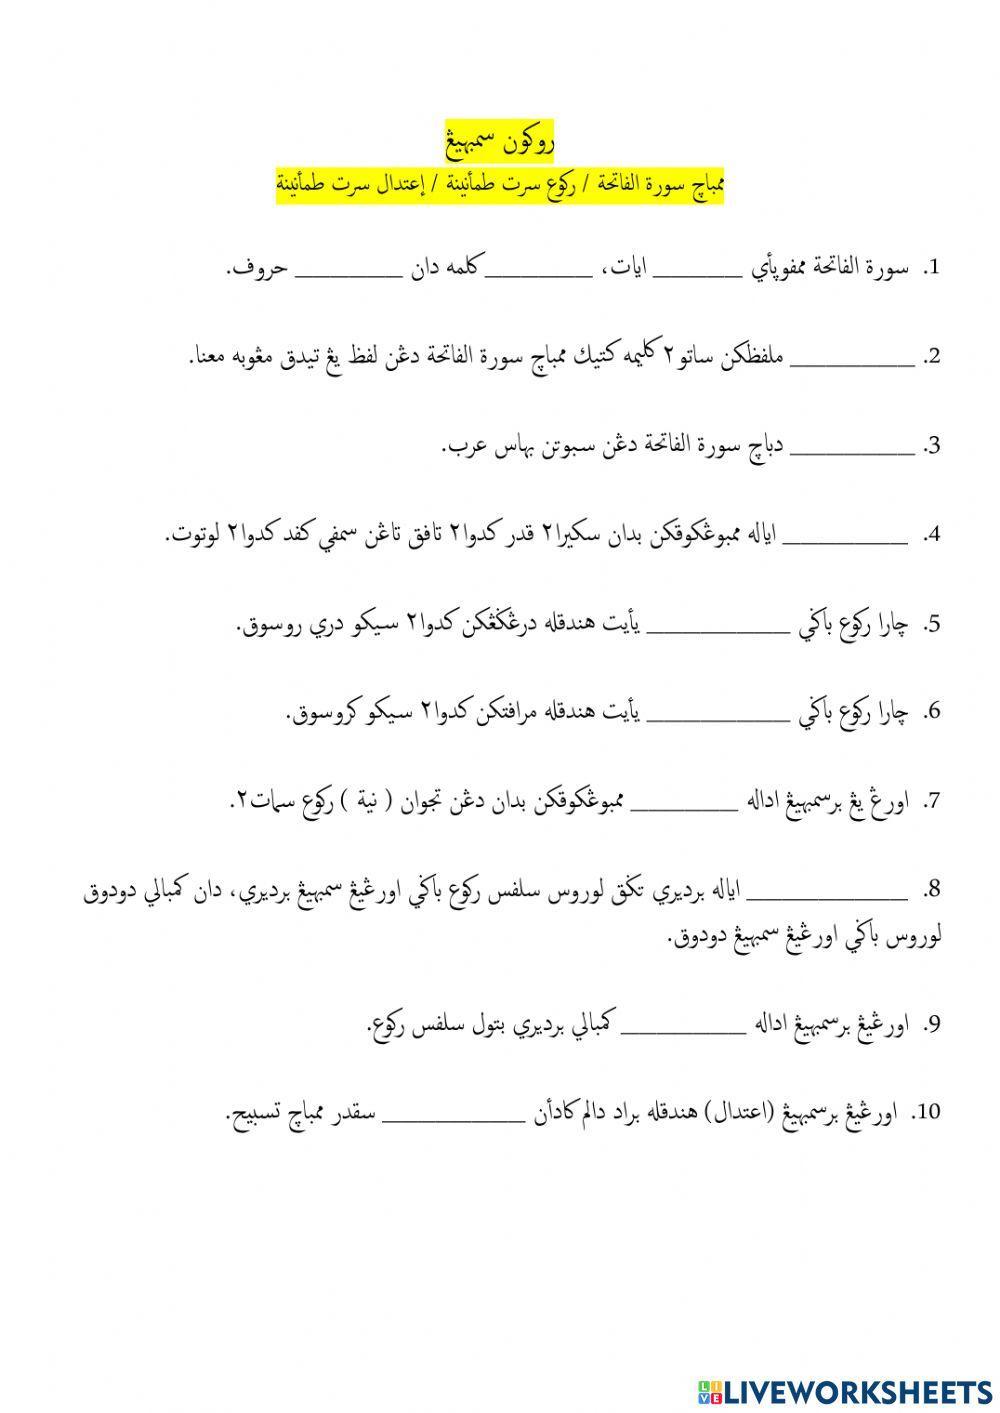 روكون سمبهيڠ
ممباچ سورة الفاتحة / ركوع سرت طمأنينة / إعتدال سرت طمأنينة
1. سورة الفاتحة ممفوڽأي _______ ايات، _________كلمه دان _________ حروف.
2. __________ ملفظكن ساتو٢ كليمه كتيك ممباچ سورة الفاتحة دڠن لفظ يڠ تيدق مڠوبه معنا.
3. __________ دباچ سورة الفاتحة دڠن سبوتن بهاس عرب.
4. __________ اياله ممبوڠكوقكن بدان سكيرا٢ قدر كدوا٢ تافق تاڠن سمفي كفد كدوا٢ لوتوت.
5. چارا ركوع باڬي ___________ يأيت هندقله درڠڬڠكن كدوا٢ سيكو دري روسوق.
6. چارا ركوع باڬي ___________ يأيت هندقله مرافتكن كدوا٢ سيكو كروسوق.
7. اورڠ يڠ برسمبهيڠ اداله ________ ممبوڠكوقكن بدان دڠن تجوان ( نية ) ركوع سمات٢.
8. ____________ اياله برديري تڬق لوروس سلفس ركوع باڬي اورڠيڠ سمبهيڠ برديري، دان كمبالي دودوق
لوروس باڬي اورڠيڠ سمبهيڠ دودوق.
9. اورڠيڠ برسمبهيڠ اداله __________ كمبالي برديري بتول سلفس ركوع.
10. اورڠيڠ برسمبهيڠ (اعتدال) هندقله براد دالم كادأن ___________ سقدر ممباچ تسبيح.
LIVE LIVEWORKSHEETS